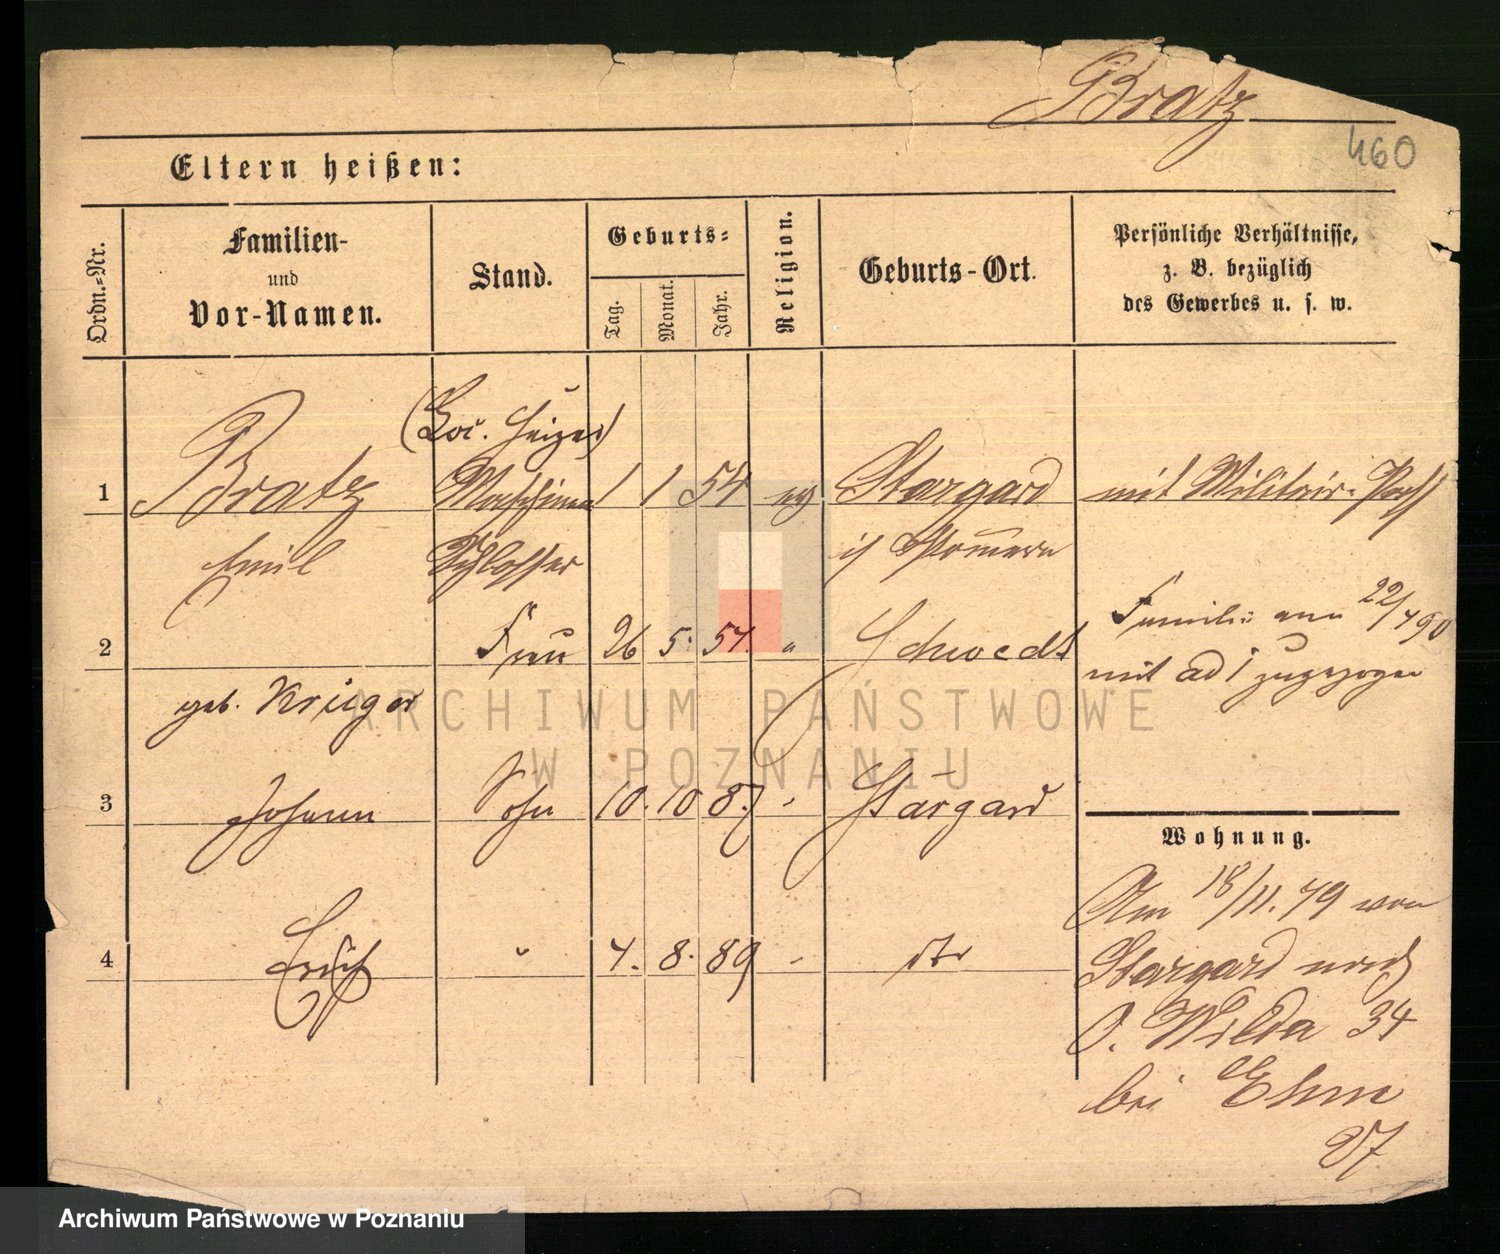 Bratz
460
Eltern heißen:
Ordn.-Nr.
Familien-
und
Vor-Namen.
Stand.
Geburts-
Tag.
Monat.
Jahr.
Religion.
Geburts-Ort.
Persönliche Verhältnisse,
z. B. bezüglich
des Gewerbes u. s. w.
(Loc. Heizer)
1 Bratz Maschinen 1 1 54 ev Stargard mit Militair-Paß
Emil Schlosser i/ Pommern
2 Frau 26 5. 54 " Schwedt
Familie am 22/4 90
mit ad 1 zugezogen
geb. Krüger
3 Johann Sohn 10. 10 87 " Stargard
Wohnung.
Am 18/11. 79 von
4 Erich " 4. 8. 89 " dto
Stargard nach
O. Wilda 34
bei Ehm
ARCHIWUM PAŃSTWOWE
W POZNANIU
Archiwum Państwowe w Poznaniu